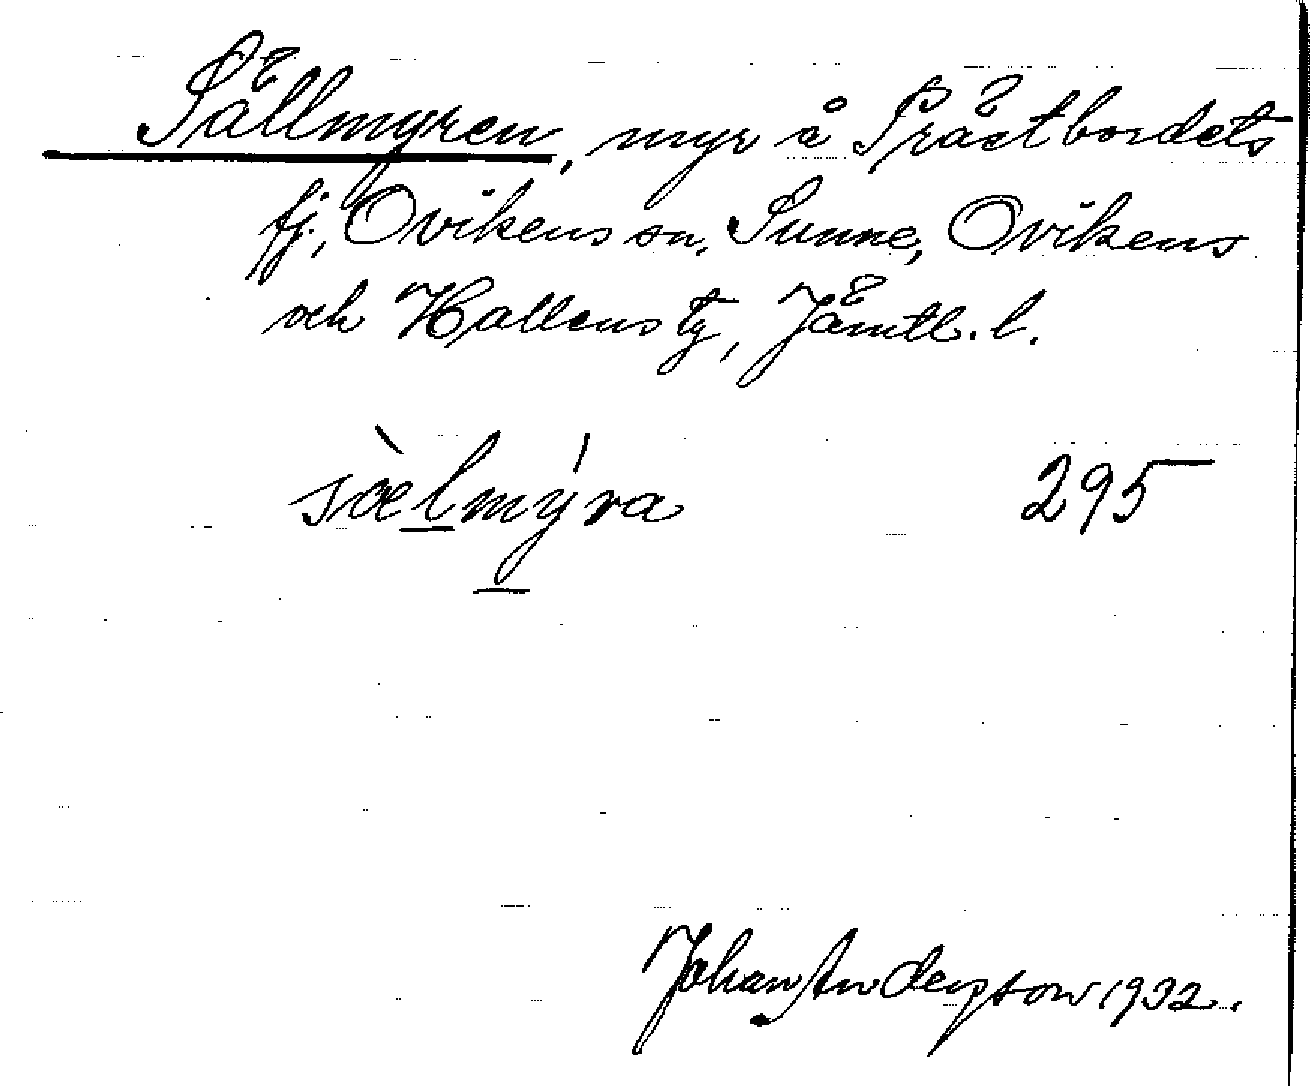 Sällmyren, myr å Prästbordets
fj., Ovikens sn, Sunne, Ovikens
och Hallens tg, Jämtl. l.
sàelmýra 295
Johan Anderson 1932.